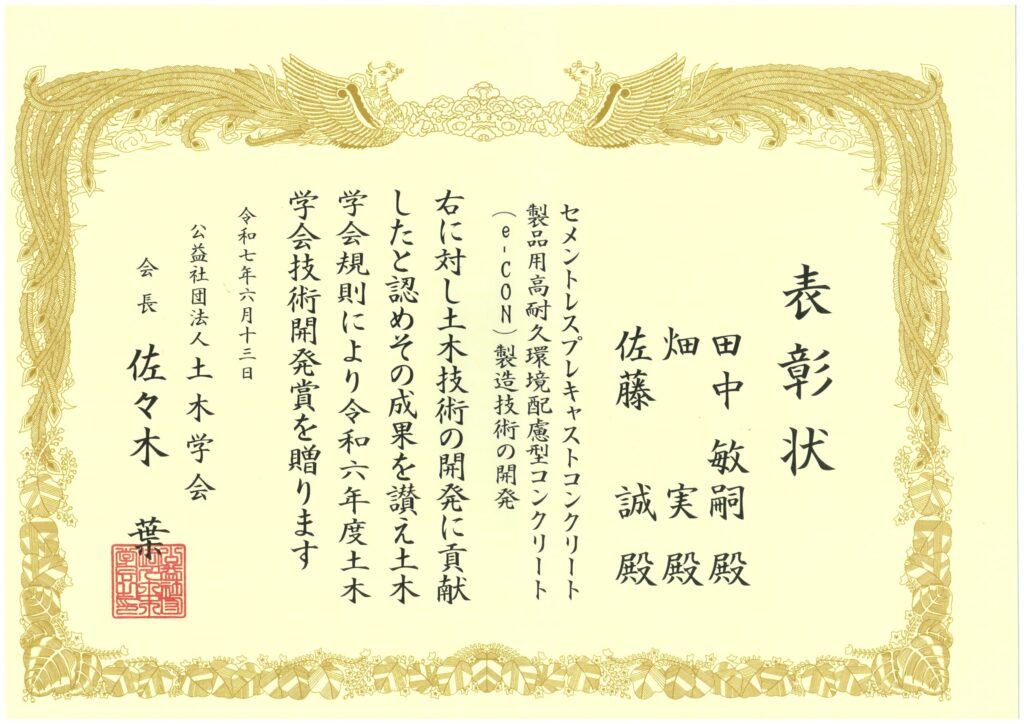 表彰状
田中 敏嗣 殿
畑 実 殿
佐藤 誠 殿
セメントレスプレキャストコンクリート
製品用高耐久環境配慮型コンクリート
(e-CON)製造技術の開発
右に対し土木技術の開発に貢献
したと認めその成果を讃え土木
学会規則により令和六年度土木
学会技術開発賞を贈ります
令和七年六月十三日
公益社団法人 土木学会
会長 佐々木 葉